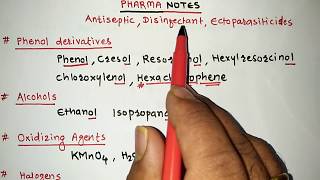 PHARMA NOTES
Antiseptic, Disinfectant, Ectoparasiticides
# Phenol derivatives
Phenol, Cresol, Resorcinol, Hexylresorcinol
chloroxylenol, Hexachlorophene
# Alcohols
Ethanol Isopropano
# Oxidizing Agents
KMnO4, H2O
# Halogens